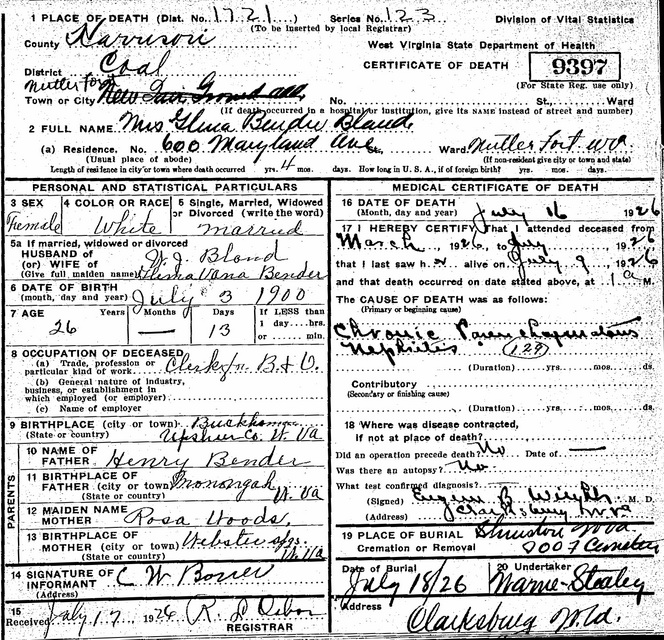 1 PLACE OF DEATH (Dist. No. 1721) Series No. 123 Division of Vital Statistics
(To be inserted by local Registrar)
County Harrison West Virginia State Department of Health
District Coal CERTIFICATE OF DEATH 9397
Nutter Fort
(For State Reg. use only)
Town or City No. St., Ward
(If death occurred in a hospital or institution, give its NAME instead of street and number)
2 FULL NAME Mrs Bender Bland
(a) Residence. No. 600 Maryland Ave St., Ward. Nutter Fort WV
(Usual place of abode) (If non-resident give city or town and state)
Length of residence in city or town where death occurred yrs. 4 mos. days. How long in U. S., if of foreign birth? yrs. mos. days.
PERSONAL AND STATISTICAL PARTICULARS
3 SEX Female
4 COLOR OR RACE White
5 Single, Married, Widowed or Divorced (write the word) married
5a If married, widowed or divorced
HUSBAND of
(or) WIFE of W. J. Bland
(Give full maiden name) Vana Bender
6 DATE OF BIRTH
(month, day and year) July 3 1900
7 AGE Years Months Days If LESS than
26 — 13 1 day....hrs.
or.....min.
8 OCCUPATION OF DECEASED
(a) Trade, profession or
particular kind of work Clerk for B & O.
(b) General nature of industry,
business, or establishment in
which employed (or employer)
(c) Name of employer
9 BIRTHPLACE (city or town) Buckhannon
(State or country) Upshur Co. W. Va
PARENTS
10 NAME OF
FATHER Henry Bender
11 BIRTHPLACE OF
FATHER (city or town) Monongah
(State or country) W. Va
12 MAIDEN NAME
MOTHER Rosa Woods.
13 BIRTHPLACE OF
MOTHER (city or town) Webster Spgs.
(State or country) W. Va
14 SIGNATURE OF
INFORMANT C W
(Address)
15
Received July 17 1926
REGISTRAR
MEDICAL CERTIFICATE OF DEATH
16 DATE OF DEATH
(Month, day and year) July 16 1926
17 I HEREBY CERTIFY That I attended deceased from
March 1926 to July 1926
that I last saw h alive on July 9 1926
and that death occurred on date stated above, at 1 a M.
The CAUSE OF DEATH was as follows:
(Primary or beginning cause)
Chronic Parenchymatous
Nephritis 129
(Duration) yrs. mos. ds.
Contributory
(Secondary or finishing cause)
(Duration) yrs. mos. ds.
18 Where was disease contracted,
If not at place of death?
Did an operation precede death? No Date of —
Was there an autopsy? No
What test confirmed diagnosis?
(Signed) B. M. D.
(Address) Clarksburg W Va
19 PLACE OF BURIAL
Cremation or Removal IOOF Cemetery
Date of Burial
July 18/26
20 Undertaker
Address
Clarksburg